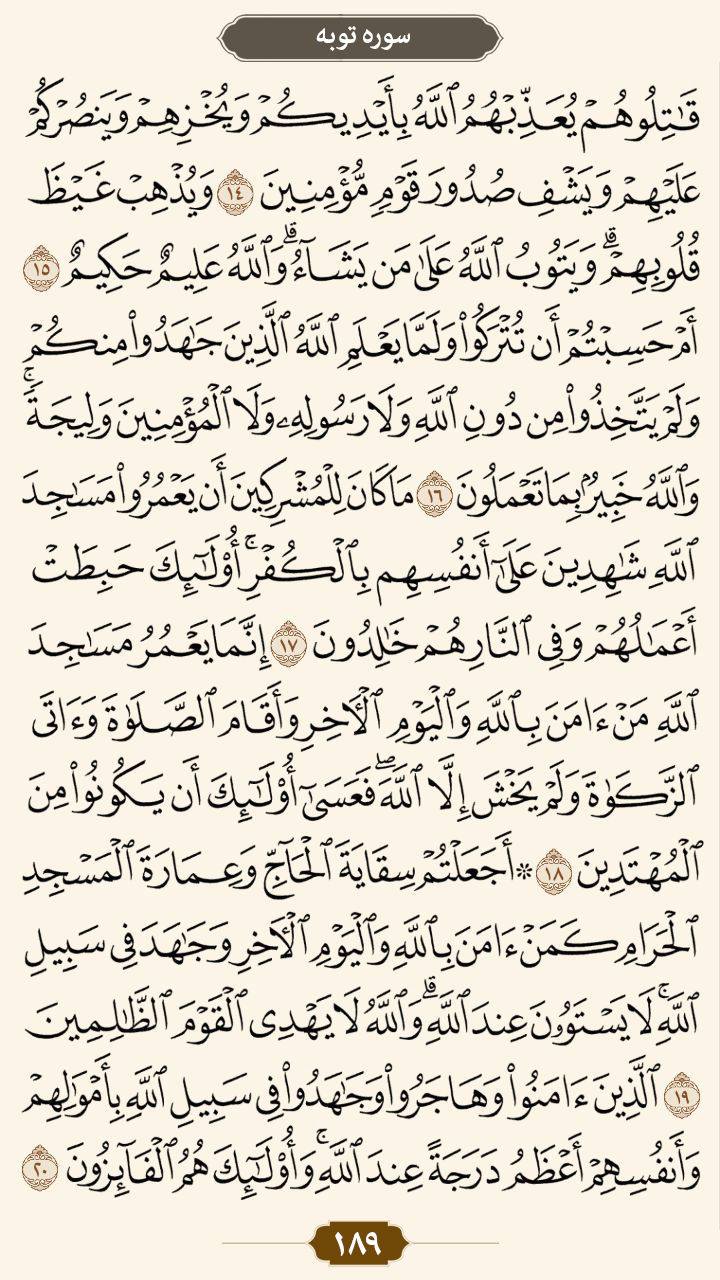 سوره توبه
قَٰتِلُوهُمْ يُعَذِّبْهُمُ ٱللَّهُ بِأَيْدِيكُمْ وَيُخْزِهِمْ وَيَنصُرْكُمْ
عَلَيْهِمْ وَيَشْفِ صُدُورَ قَوْمٍ مُّؤْمِنِينَ ١٤ وَيُذْهِبْ غَيْظَ
قُلُوبِهِمْ ۗ وَيَتُوبُ ٱللَّهُ عَلَىٰ مَن يَشَآءُ ۗ وَٱللَّهُ عَلِيمٌ حَكِيمٌ ١٥
أَمْ حَسِبْتُمْ أَن تُتْرَكُوا۟ وَلَمَّا يَعْلَمِ ٱللَّهُ ٱلَّذِينَ جَٰهَدُوا۟ مِنكُمْ
وَلَمْ يَتَّخِذُوا۟ مِن دُونِ ٱللَّهِ وَلَا رَسُولِهِۦ وَلَا ٱلْمُؤْمِنِينَ وَلِيجَةً ۚ
وَٱللَّهُ خَبِيرٌۢ بِمَا تَعْمَلُونَ ١٦ مَا كَانَ لِلْمُشْرِكِينَ أَن يَعْمُرُوا۟ مَسَٰجِدَ
ٱللَّهِ شَٰهِدِينَ عَلَىٰٓ أَنفُسِهِم بِٱلْكُفْرِ ۚ أُو۟لَٰٓئِكَ حَبِطَتْ
أَعْمَٰلُهُمْ وَفِى ٱلنَّارِ هُمْ خَٰلِدُونَ ١٧ إِنَّمَا يَعْمُرُ مَسَٰجِدَ
ٱللَّهِ مَنْ ءَامَنَ بِٱللَّهِ وَٱلْيَوْمِ ٱلْءَاخِرِ وَأَقَامَ ٱلصَّلَوٰةَ وَءَاتَى
ٱلزَّكَوٰةَ وَلَمْ يَخْشَ إِلَّا ٱللَّهَ ۖ فَعَسَىٰٓ أُو۟لَٰٓئِكَ أَن يَكُونُوا۟ مِنَ
ٱلْمُهْتَدِينَ ١٨ * أَجَعَلْتُمْ سِقَايَةَ ٱلْحَآجِّ وَعِمَارَةَ ٱلْمَسْجِدِ
ٱلْحَرَامِ كَمَنْ ءَامَنَ بِٱللَّهِ وَٱلْيَوْمِ ٱلْءَاخِرِ وَجَٰهَدَ فِى سَبِيلِ
ٱللَّهِ ۚ لَا يَسْتَوُۥنَ عِندَ ٱللَّهِ ۗ وَٱللَّهُ لَا يَهْدِى ٱلْقَوْمَ ٱلظَّٰلِمِينَ
١٩ ٱلَّذِينَ ءَامَنُوا۟ وَهَاجَرُوا۟ وَجَٰهَدُوا۟ فِى سَبِيلِ ٱللَّهِ بِأَمْوَٰلِهِمْ
وَأَنفُسِهِمْ أَعْظَمُ دَرَجَةً عِندَ ٱللَّهِ ۚ وَأُو۟لَٰٓئِكَ هُمُ ٱلْفَآئِزُونَ ٢٠
١٨٩